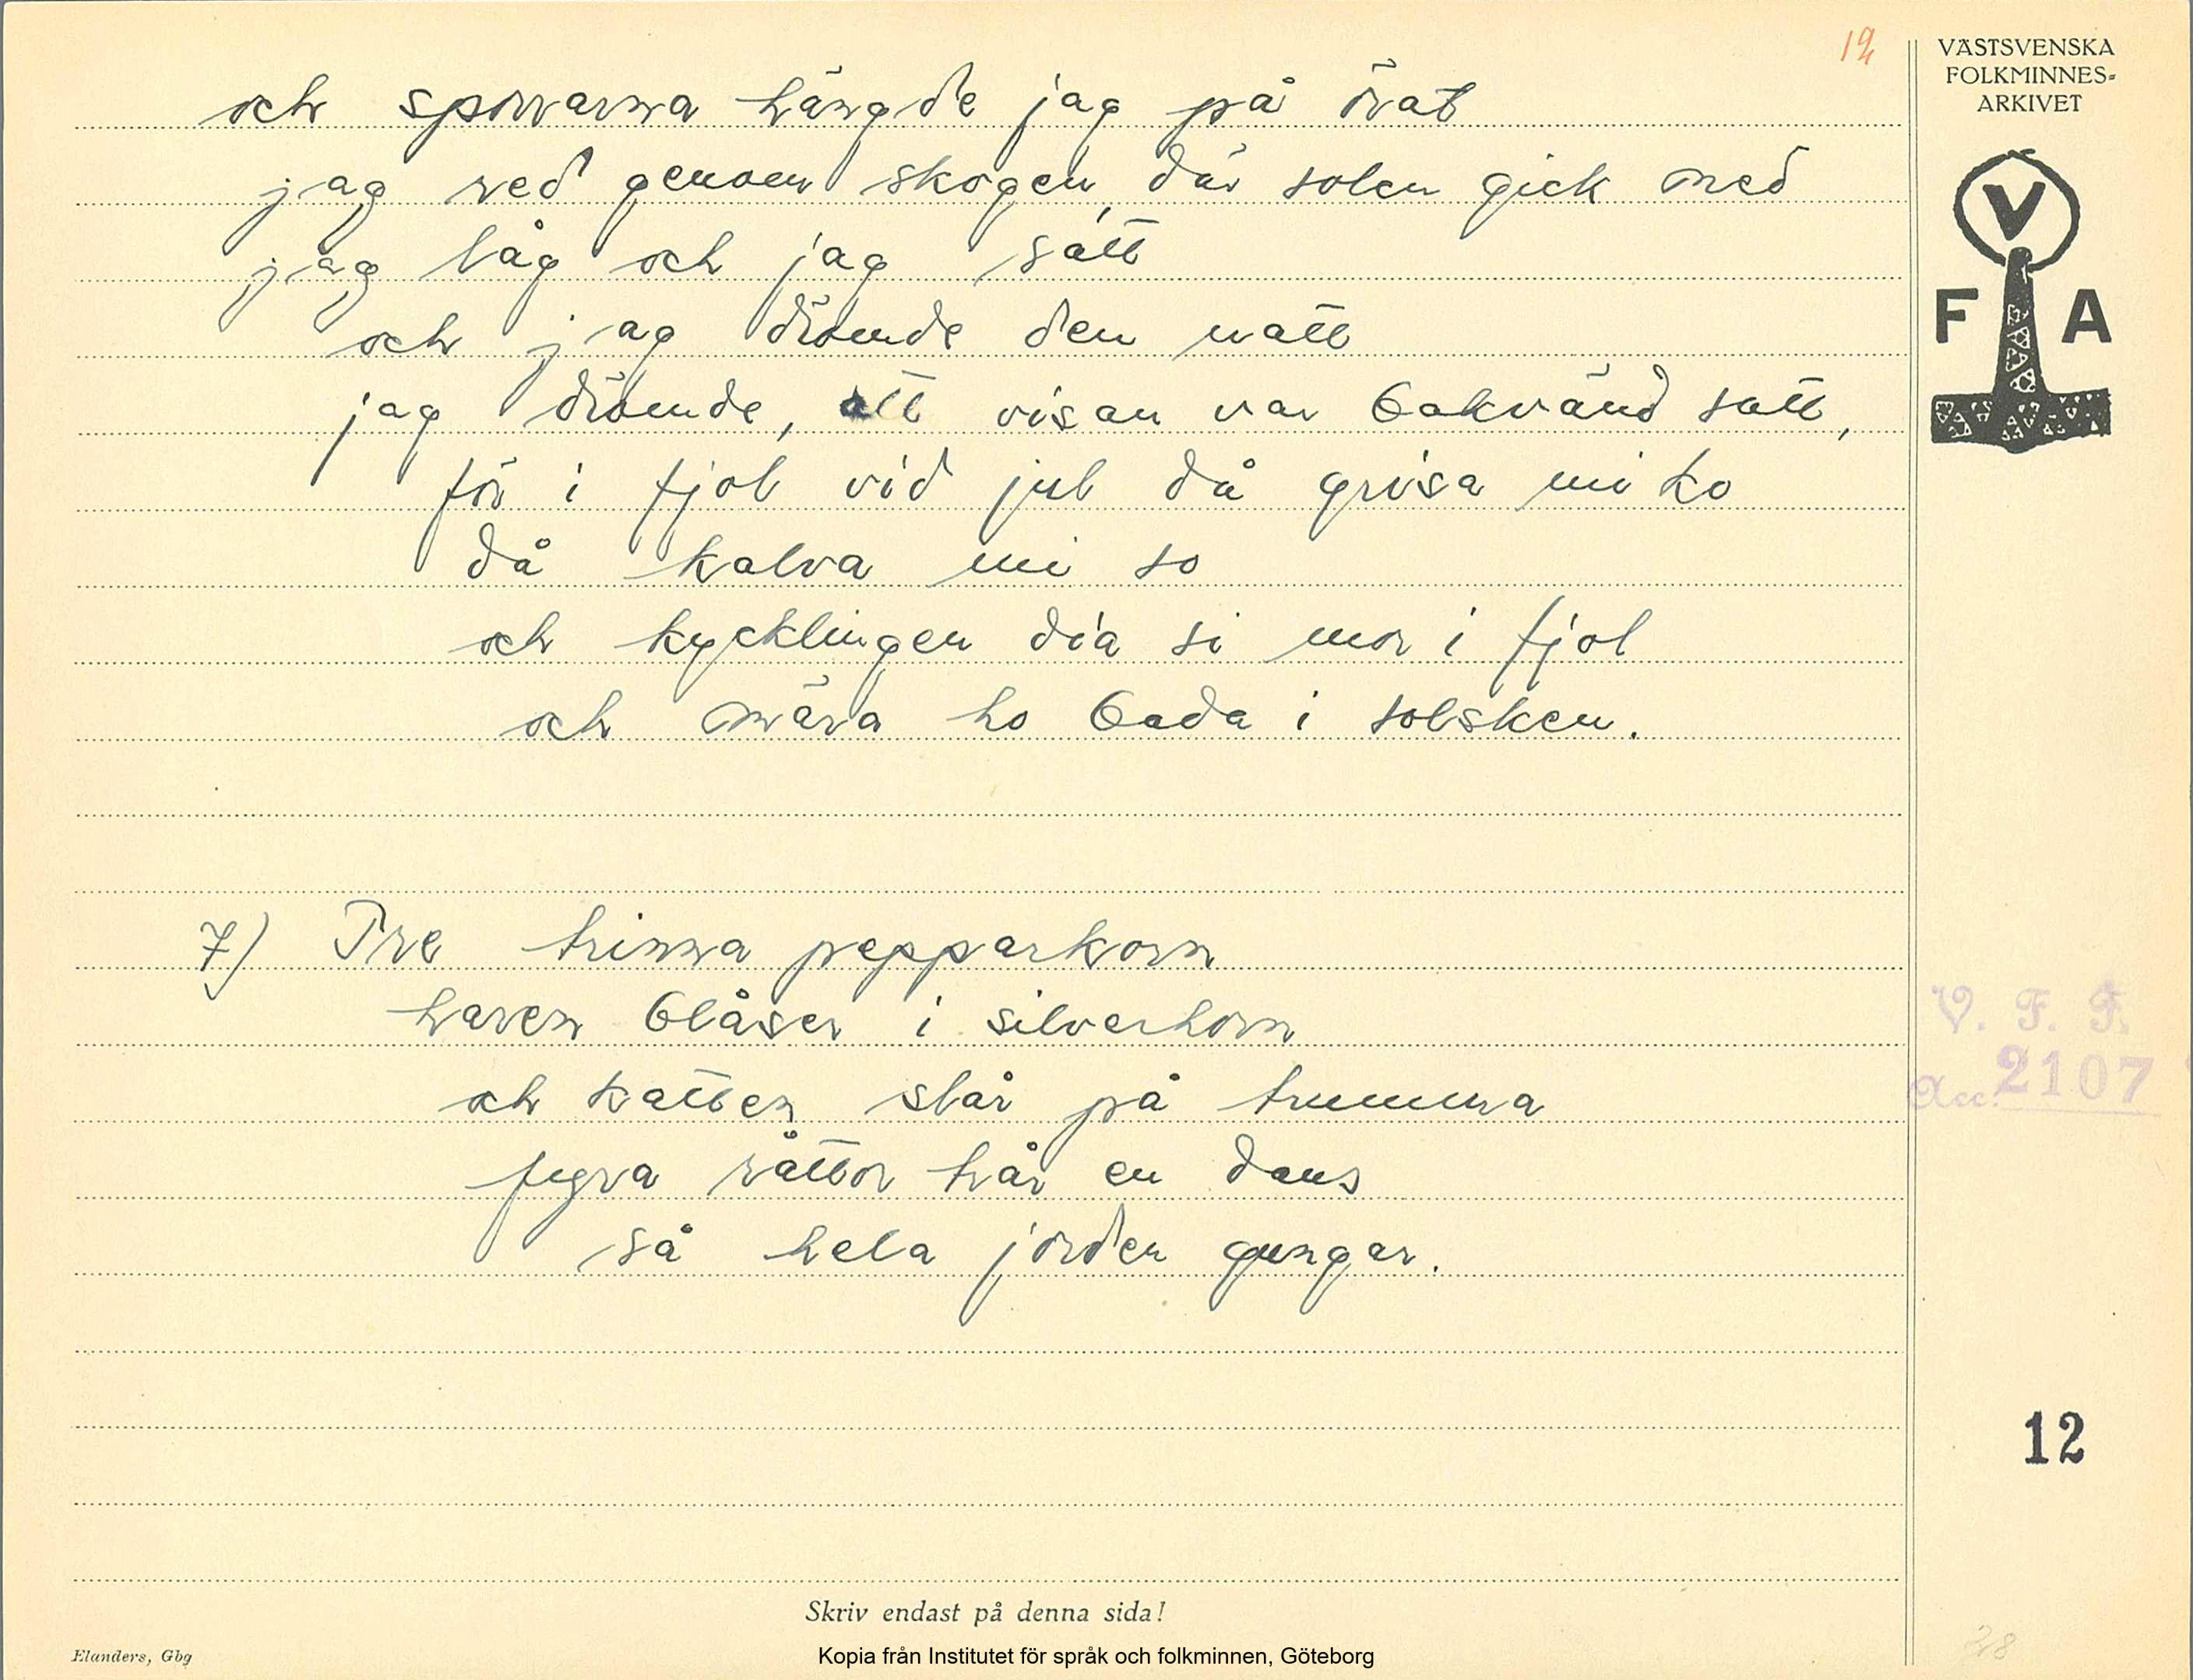 12
och sporrarna hängde jag på örat
jag red genom skogen, där solen gick ned
jag låg och jag satt
och jag drömde den natt
jag drömde, att visan var bakvänd satt,
för i fjol vid jul då grisa mi ko
då kalva mi so
och kycklingen dia si mor i fjol
och mära ho bada i solsken.
7) Tre trinna pepparkorn
haren blåser i silverhorn
och katten slår på trumma
fyra råttor trår en dans
så hela jorden gungar.
VÄSTSVENSKA
FOLKMINNES-
ARKIVET
V
F A
V. F. F.
Acc. 2107
12
28
Skriv endast på denna sida!
Elanders, Gbg
Kopia från Institutet för språk och folkminnen, Göteborg